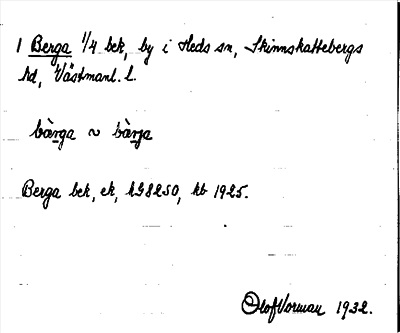 1 Berga 1/4 bek, by i Heds sn, Skinnskattebergs
hd, Västmanl. l.
bàrga ~ bàrja
Berga bek, ek, kG8250, kb 1925.
Olof Norman 1932.